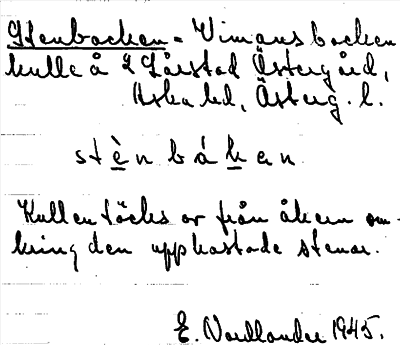 Stenbacken = Vimans backen
kulle å 2 Lårstad Östergård,
Aska hd, Österg. l.
stè̲n bá k̲en
Kullen täcks av från åkern om-
kring den uppkastade stenar.
E. Nordlander 1945.